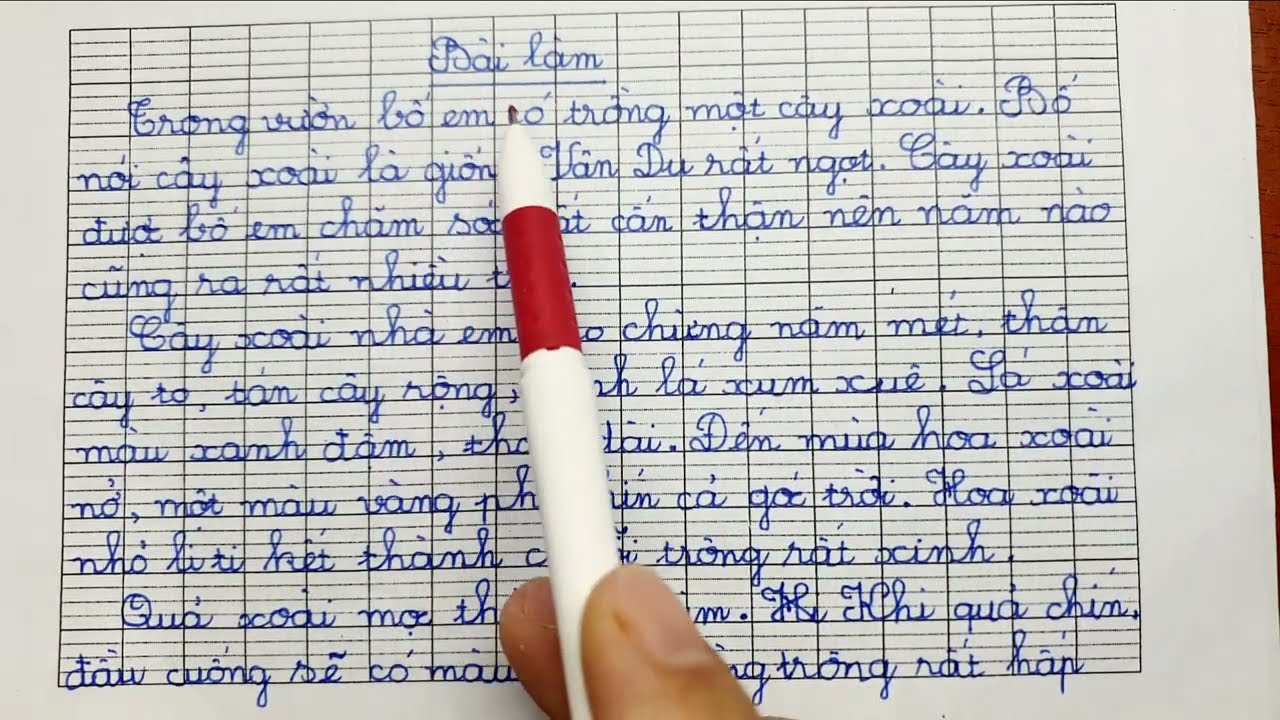 Bài làm
Trong vườn bố em có trồng một cây xoài. Bố
nói cây xoài là giống Vân Du rất ngọt. Cây xoài
được bố em chăm sóc rất cẩn thận nên năm nào
cũng ra rất nhiều
Cây xoài nhà em cao chừng năm mét, thân
cây to, tán cây rộng, lá xum xuê. Lá xoài
màu xanh đậm, dài. Đến mùa hoa xoài
nở, một màu vàng cả góc trời. Hoa xoài
nhỏ li ti kết thành trông rất xinh.
Quả xoài mọc Khi quả chín,
đầu cuống sẽ có màu trông rất hấp